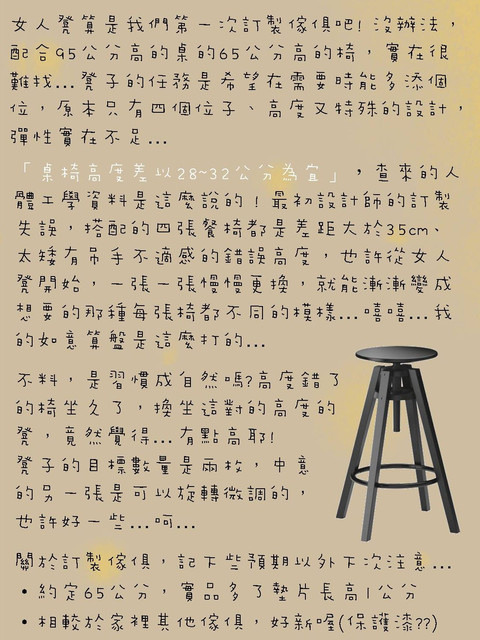 女人凳算是我們第一次訂製傢俱吧! 沒辦法，
配合95公分高的桌的65公分高的椅，實在很
難找...凳子的任務是希望在需要時能多添個
位，原本只有四個位子、高度又特殊的設計，
彈性實在不足...
「桌椅高度差以28~32公分為宜」，查來的人
體工學資料是這麼說的！最初設計師的訂製
失誤，搭配的四張餐椅都是差距大於35cm、
太矮有吊手不適感的錯誤高度，也許從女人
凳開始，一張一張慢慢更換，就能漸漸變成
想要的那種每張椅都不同的模樣...嘻嘻...我
的如意算盤是這麼打的...
不料，是習慣成自然嗎?高度錯了
的椅坐久了，換坐這對的高度的
凳，竟然覺得...有點高耶!
凳子的目標數量是兩枚，中意
的另一張是可以旋轉微調的，
也許好一些...呵...
關於訂製傢俱，記下些預期以外下次注意...
•約定65公分，實品多了墊片長高1公分
•相較於家裡其他傢俱，好新喔(保護漆??)